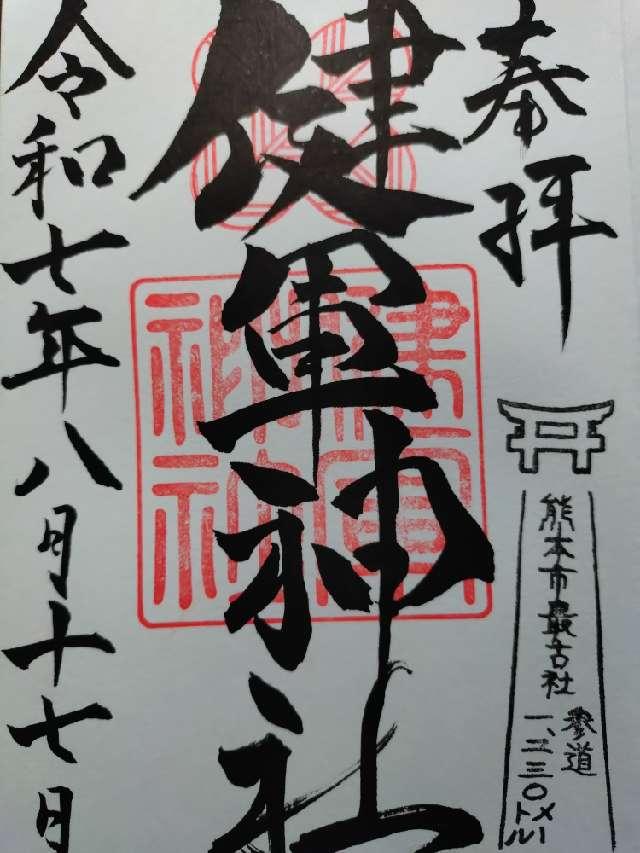 奉拝
熊本市最古社
参道
一、二三〇メートル
健軍神社
令和七年八月十七日